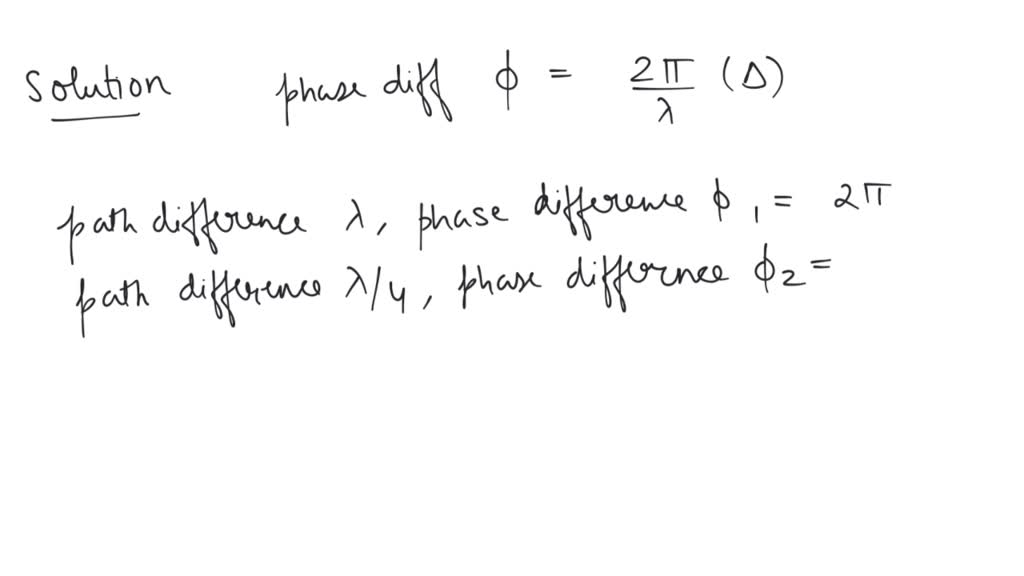 Solution phase diff ϕ = 2π/λ (Δ)
path difference λ, phase difference ϕ₁ = 2π
path difference λ/4, phase differnce ϕ₂ =